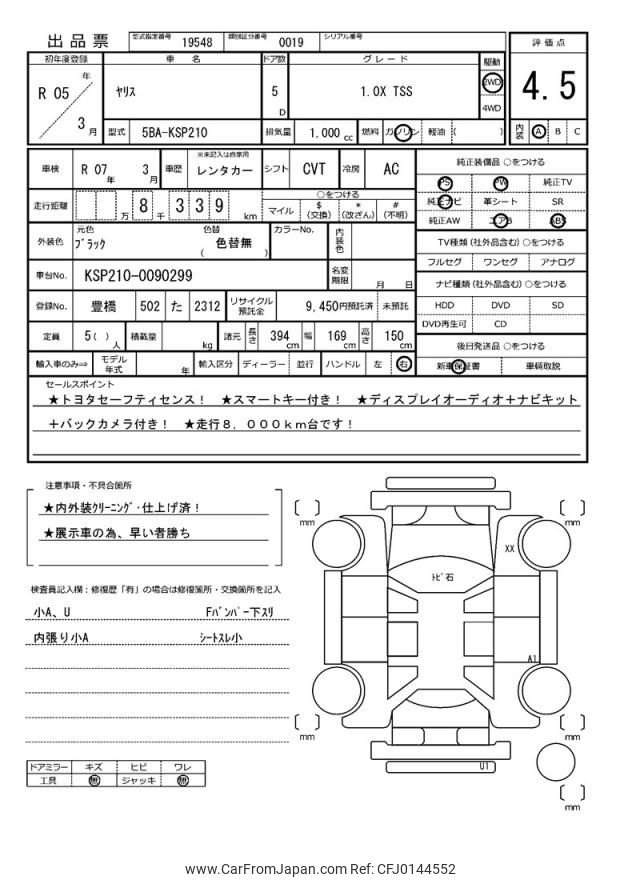 出品票 型式指定番号 19548 類別区分番号 0019 シリアル番号
評価点
初年度登録 車名 ドア数 グレード 駆動
R 05 年 3 月 ヤリス 5 D 1.0X TSS 2WD 4WD
4.5
型式 5BA-KSP210 排気量 1,000 cc 燃料 ガソリン 軽油 ( )
内装 A B C
車検 R 07 年 3 月 車歴 ※未記入は自家用 レンタカー シフト CVT 冷房 AC
純正装備品 ○をつける
PS PW 純正TV
走行距離 万 8 千 3 3 9 km ○をつける
マイル $ (交換) * (改ざん) # (不明)
純正ナビ 革シート SR
純正AW エアB ABS
外装色 元色 ブラック 色替 ( 色替無 ) カラーNo. 内装色
TV種類 (社外品含む) ○をつける
フルセグ ワンセグ アナログ
車台No. KSP210-0090299 名変期限 月 日
ナビ種類 (社外品含む) ○をつける
登録No. 豊橋 502 た 2312 リサイクル預託金 9,450円預託済 未預託
HDD DVD SD
DVD再生可 CD
定員 5 ( ) 人 積載量 kg 諸元 長さ 394 cm 幅 169 cm 高さ 150 cm
後日発送品 ○をつける
輸入車のみ⇒ モデル年式 年 輸入区分 ディーラー 並行 ハンドル 左 右
新車保証書 車輌取説
セールスポイント
★トヨタセーフティセンス! ★スマートキー付き! ★ディスプレイオーディオ+ナビキット
+バックカメラ付き! ★走行8,000km台です!
注意事項・不具合箇所
★内外装クリーニング・仕上げ済!
★展示車の為、早い者勝ち
検査員記入欄:修復歴「有」の場合は修復箇所・交換箇所を記入
小A、U Fバンパー下スリ
内張り小A シートスレ小
ドアミラー キズ ヒビ ワレ
工具 無 ジャッキ 無
mm
mm
XX
トビ石
A1
mm
mm
U1
mm
www.CarFromJapan.com Ref: CFJ0144552